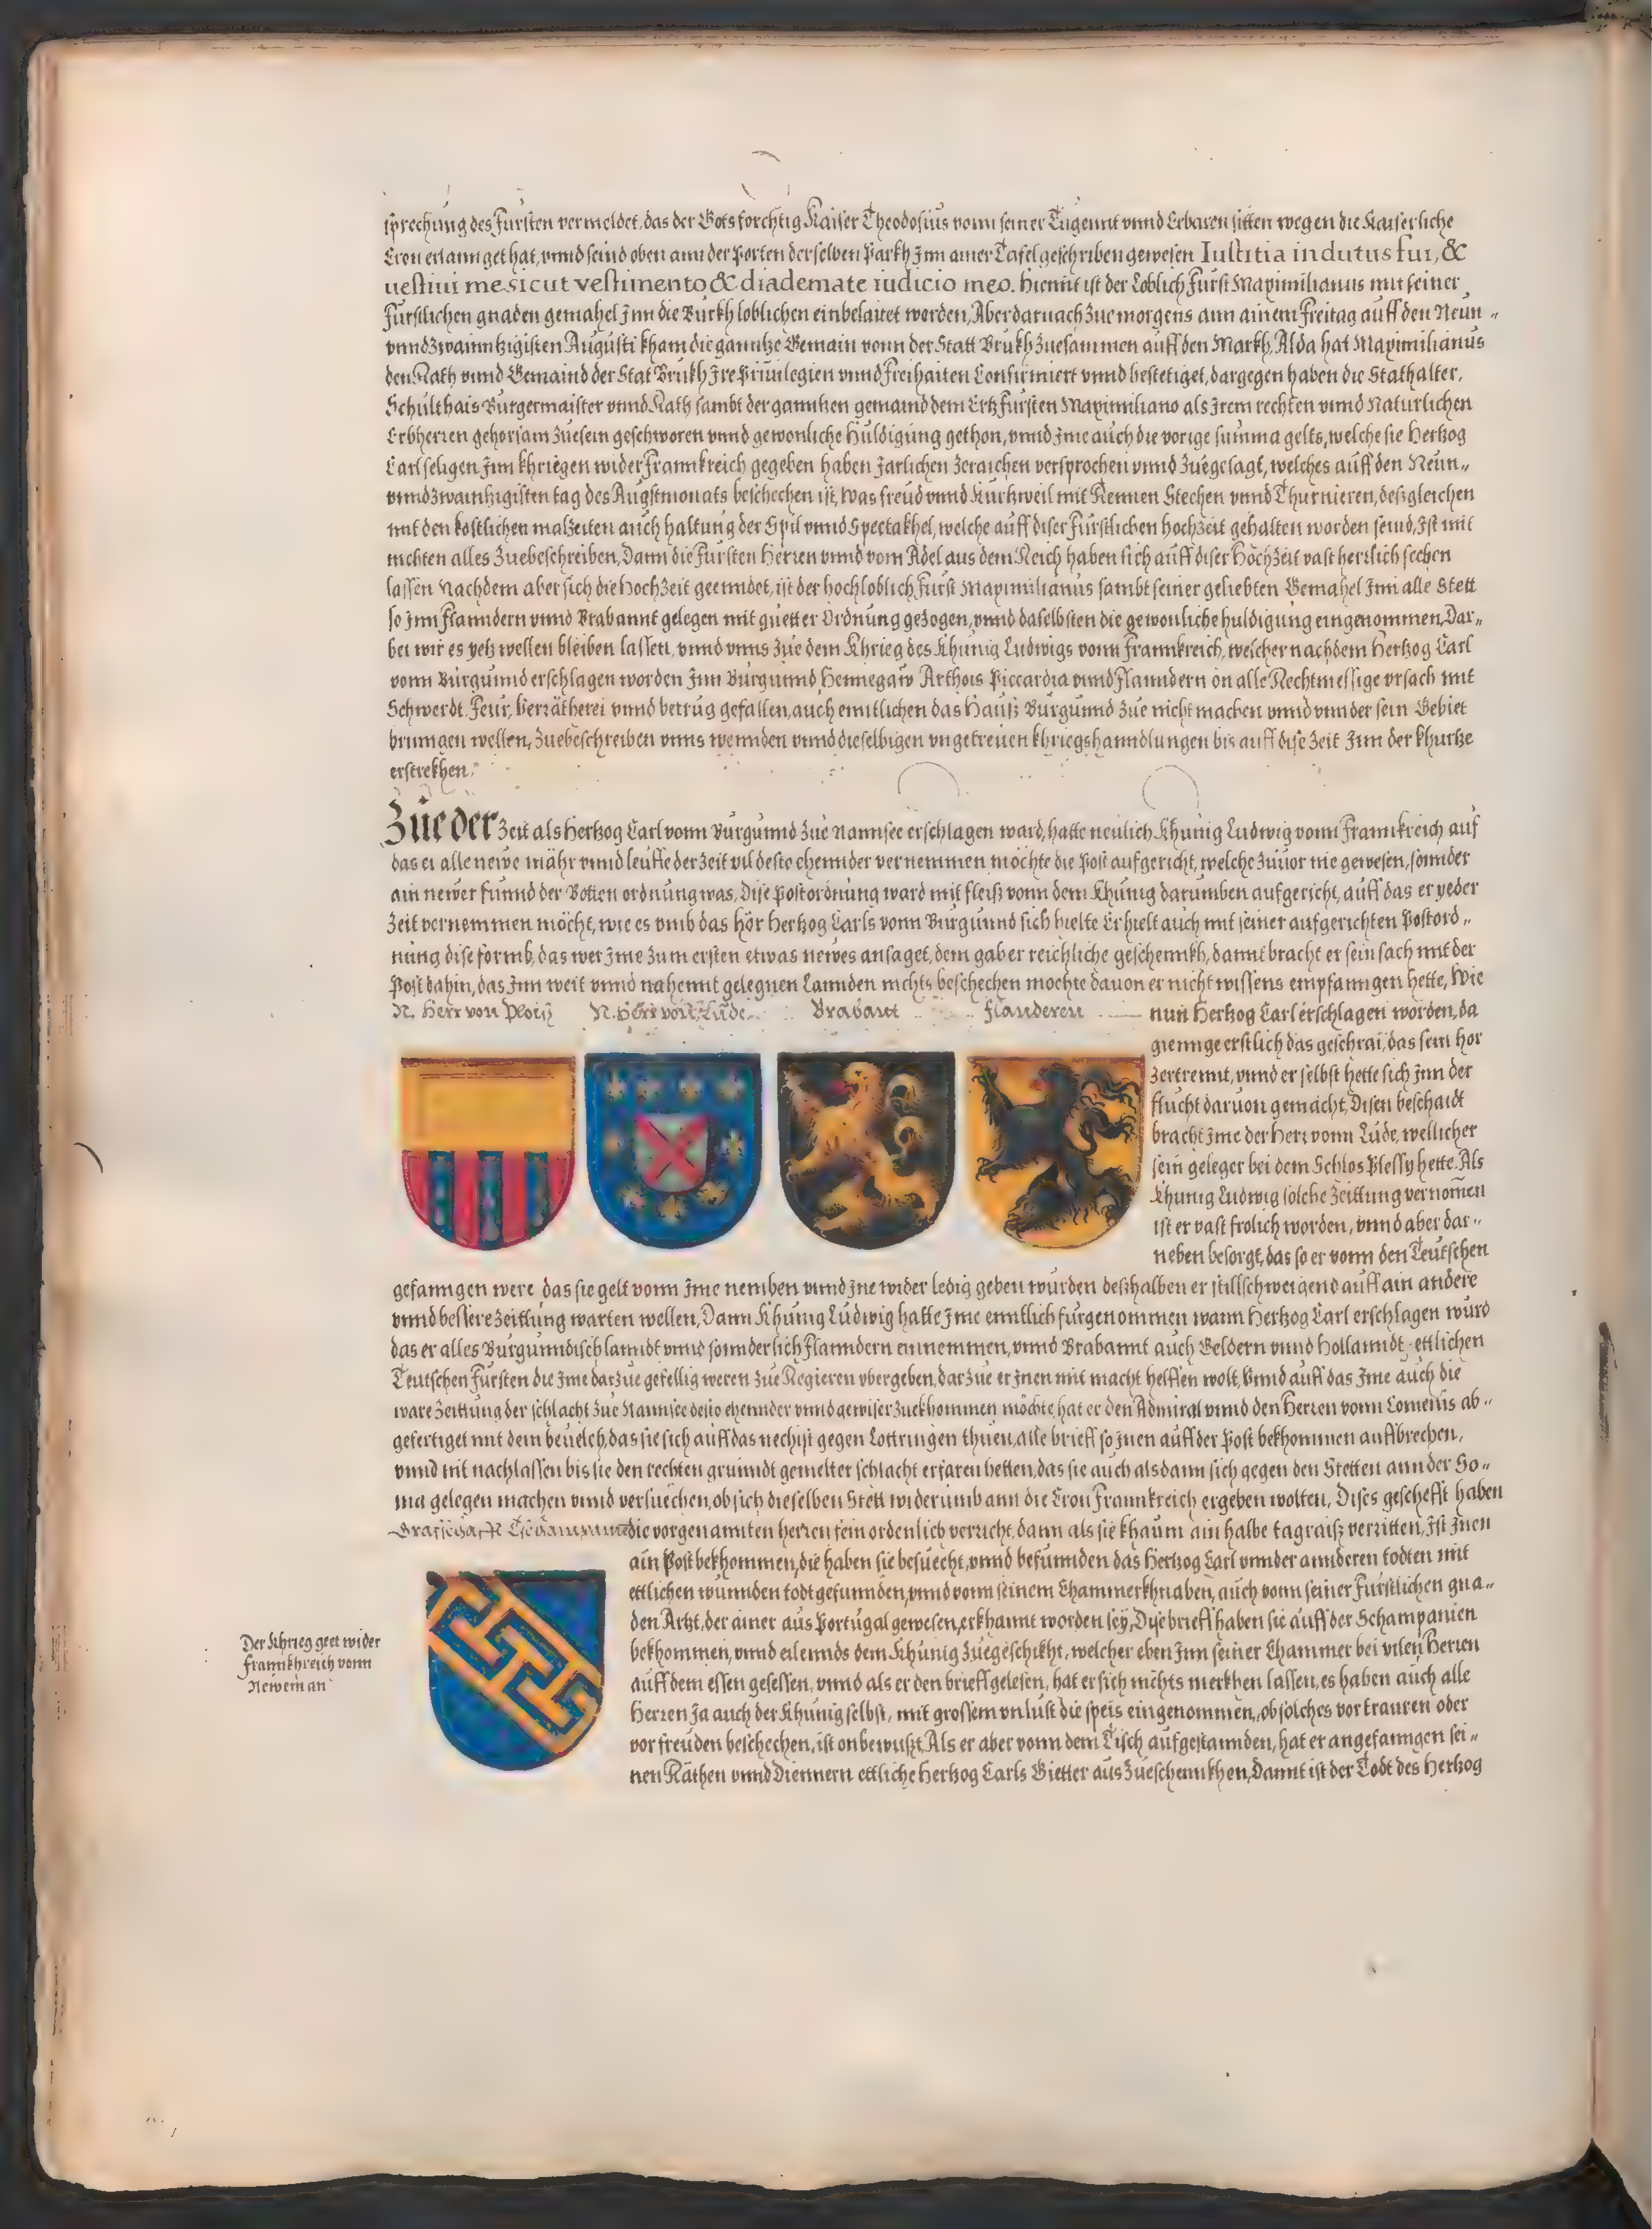 sprechung des Fürsten vermeldet, das der Gotsforchtig Kaiser Theodosius vonn seiner Tugennt vnnd Erbaren sitten wegen die Kaiserliche
Cron erlannget hat, vnnd seind oben ann der Porten derselben Parkh Jnn ainer Tafel geschriben gewesen Iustitia indutus sui, &
uestiui me sicut vestimento & diademate iudicio meo. Hiemit ist der Loblich Fürst Maximilianus mit seiner
Fürstlichen gnaden gemahel Jnn die Burkh loblichen einbelaitet worden, Aber darnach zue morgens ann ainem Freitag auff den Neun„
vnndzwainntzigisten Augusti kham die ganntze Gemain vonn der Statt Brukh zuesammen auff den Markh, Alda hat Maximilianus
den Rath vnnd Gemaind der Stat Brukh Jre Priuilegien vnnd Freihaiten Confirmiert vnnd bestetiget, dargegen haben die Stathalter,
Schulthais Burgermaister vnnd Rath sambt der ganntzen gemaind dem Ertzfürsten Maximiliano als Jrem rechten vnnd Naturlichen
Erbherren gehorsam zuesein geschworen vnnd gewonliche Huldigung gethon, vnnd Jme auch die vorige summa gelts, welche sie Hertzog
Carl seligen Jnn khriegen wider Frannkreich gegeben haben Jarlichen zeraichen versprochen vnnd zuegesagt, welches auff den Neun„
vnndzwaintzigisten tag des Augstmonats beschechen ist, Was freud vnnd Kurtzweil mit Rennen Stechen vnnd Thurnieren, deßgleichen
mit den kostlichen malzeiten auch haltung der Spil vnnd Spectakhel, welche auff diser Fürstlichen hochzeit gehalten worden seind, Jst mit
nichten alles zuebeschreiben, Dann die Fürsten Herren vnnd vom Adel aus dem Reich haben sich auff diser Hochzeit vast herrlich sechen
lassen Nachdem aber sich die Hochzeit geenndet, ist der hochloblich Fürst Maximilianus sambt seiner geliebten Gemahel Jnn alle Stett
so Jnn Flanndern vnnd Brabannt gelegen mit guetter Ordnung gezogen, vnnd daselbsten die gewonliche huldigung eingenommen, Dar„
bei wir es yetz wellen bleiben lassen, vnnd vnns zue dem Khrieg des Khunig Ludwigs vonn Frannkreich, welcher nachdem Hertzog Carl
vonn Burgunnd erschlagen worden Jnn Burgunnd, Hennegaw Arthois Piccardia vnnd Flanndern on alle Rechtmessige vrsach mit
Schwerdt, Feur, Verrätherei vnnd betrug gefallen, auch enntlichen das Hauß Burgunnd zue nicht machen vnnd vnnder sein Gebiet
bringen wellen, zuebeschreiben vnns wennden vnnd dieselbigen vngetreuen khriegshanndlungen bis auff dise Zeit Jnn der khurtze
erstrekhen.
Zue der Zeit als Hertzog Carl vonn Burgunnd zue Nannsee erschlagen ward, hatte neulich Khunig Ludwig vonn Frannkreich auf
das er alle newe mähr vnnd leuffe der Zeit vil deste ehennder vernemmen möchte die Post aufgericht, welche zuuor nie gewesen, sonnder
ain newer funnd der Botten ordnung was, Dise Postordnung ward mit fleiß vonn dem Khunig darumben aufgericht, auff das er yeder
Zeit vernemmen möcht, wie es vmb das hör Hertzog Carls vonn Burgunnd sich hielte Er hielt auch mit seiner aufgerichten Postord„
nung dise formb, das wer Jme zum ersten etwas newes ansaget, dem gab er reichliche geschennkh, damit bracht er sein sach mit der
Post dahin, das Jnn weit vnnd nahennt gelegnen Lannden nichts beschechen mochte dauon er nicht wissens empfanngen hette, Wie
N. Herr von Ploiß N. Herr von Lude Brabant Flanderen
nun Hertzog Carl erschlagen worden, da
gienge erstlich das geschrai, das sein hor
zertrennt, vnnd er selbst hette sich Jnn der
flucht daruon gemacht, Disen beschaidt
bracht Jme der Herr vonn Lude, wellicher
sein geleger bei dem Schlos Plessy hette. Als
Khunig Ludwig solche Zeittung vernomen
ist er vast frolich worden, vnnd aber dar„
neben besorgt, das so er vonn den Teutschen
gefanngen were das sie gelt vonn Jme nemben vnnd Jne wider ledig geben wurden deßhalben er stillschweigend auff ain andere
vnnd bessere Zeittung warten wellen, Dann Khunig Ludwig hatte Jme enntlich furgenommen wann Hertzog Carl erschlagen wurd
das er alles Burgunndisch lanndt vnnd sonnderlich Flanndern einnemmen, vnnd Brabannt auch Geldern vnnd Hollanndt ettlichen
Teutschen Fürsten die Jme darzue gefellig weren zue Regieren vbergeben, darzue er Jnen mit macht helffen wolt, Vnnd auff das Jme auch die
ware Zeittung der schlacht zue Nannsee desto ehennder vnnd gewiser zuekhommen möchte, hat er den Admiral vnnd den Herren vonn Comenis ab„
gefertiget mit dem beuelch, das sie sich auff das nechst gegen Lottringen thuen, alle brieff so Jnen auff der Post bekhommen auffbrechen,
vnnd nit nachlassen bis sie den rechten grunndt gemelter schlacht erfaren hetten, das sie auch alsdann sich gegen den Stetten ann der So„
ma gelegen machen vnnd versuechen, ob sich dieselben Stett widerumb ann die Cron Frannkreich ergeben wolten, Dises gescheft haben
Grafschaft Tschampannie
die vorgenannten herren fein ordenlich verricht, dann als sie khaum ain halbe tagraiß verritten, Jst Jnen
ain Post bekhommen, die haben sie besuecht, vnnd befunnden das Hertzog Carl vnnder annderen todten mit
ettlichen wunnden todt gefunnden, vnnd vonn seinem Chammerkhnaben, auch vonn seiner Furstlichen gna„
den Artzt, der ainer aus Portugal gewesen, erkhannt worden sey, Dise brieff haben sie auff der Schampanien
bekhommen, vnnd eilennds dem Khunig zuegeschikht, welcher eben Jnn seiner Chammer bei vilen Herren
auff dem essen gesessen, vnnd als er den brieff gelesen, hat er sich nichts merkhen lassen, es haben auch alle
Herren Ja auch der Khunig selbst, mit grossem vnlust die speis eingenommen, ob solches vor trauren oder
vor freuden beschechen, ist onbewußt, Als er aber vonn dem Tisch aufgestannden, hat er angefanngen sei„
nen Räthen vnnd Diennern ettliche Hertzog Carls Gietter aus zueschennkhen, Damit ist der Todt des Hertzog
Der Khrieg geet wider
Frannkhreich vonn
Newem an